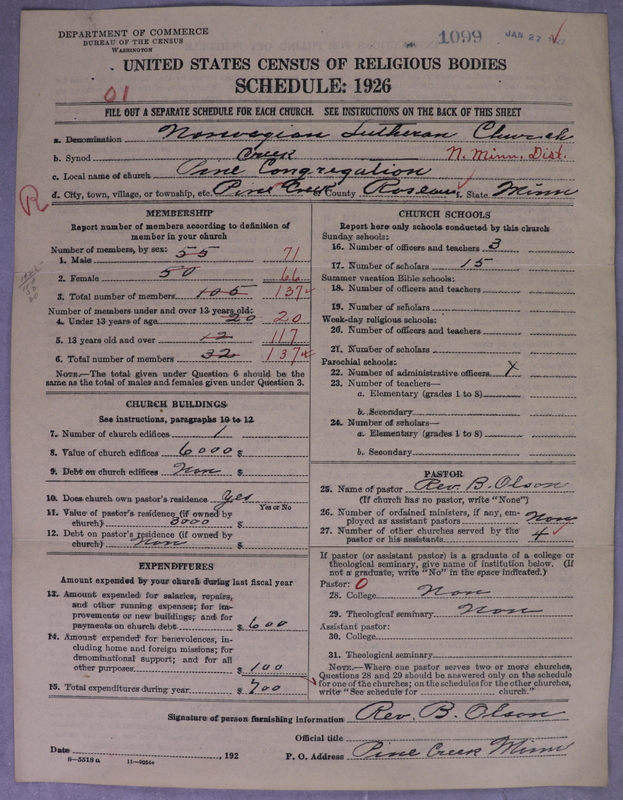 DEPARTMENT OF COMMERCE
BUREAU OF THE CENSUS
WASHINGTON
1099
JAN 27
UNITED STATES CENSUS OF RELIGIOUS BODIES
SCHEDULE: 1926
01
FILL OUT A SEPARATE SCHEDULE FOR EACH CHURCH. SEE INSTRUCTIONS ON THE BACK OF THIS SHEET
a. Denomination Norwegian Lutheran Church
b. Synod N. Minn. Dist.
c. Local name of church Pine Creek Congregation
d. City, town, village, or township, etc. Pine Creek e. County Roseau f. State Minn
R
MEMBERSHIP
Report number of members according to definition of
member in your church
Number of members, by sex:
1. Male 55 71
2. Female 50 66
3. Total number of members 105 137
Number of members under and over 13 years old:
4. Under 13 years of age 20 20
5. 13 years old and over 12 117
6. Total number of members 32 137
NOTE.—The total given under Question 6 should be the
same as the total of males and females given under Question 3.
CHURCH BUILDINGS
See instructions, paragraphs 10 to 12
7. Number of church edifices 1
8. Value of church edifices 6000 $
9. Debt on church edifices Non $
10. Does church own pastor's residence yes
Yes or No
11. Value of pastor's residence (if owned by
church) 3000 $
12. Debt on pastor's residence (if owned by
church) Non $
EXPENDITURES
Amount expended by your church during last fiscal year
13. Amount expended for salaries, repairs,
and other running expenses; for im-
provements or new buildings; and for
payments on church debt $ 600
14. Amount expended for benevolences, in-
cluding home and foreign missions; for
denominational support; and for all
other purposes $ 100
15. Total expenditures during year $ 700
CHURCH SCHOOLS
Report here only schools conducted by this church
Sunday schools:
16. Number of officers and teachers 3
17. Number of scholars 15
Summer vacation Bible schools:
18. Number of officers and teachers
19. Number of scholars
Week-day religious schools:
20. Number of officers and teachers
21. Number of scholars
Parochial schools:
22. Number of administrative officers X
23. Number of teachers—
a. Elementary (grades 1 to 8)
b. Secondary
24. Number of scholars—
a. Elementary (grades 1 to 8)
b. Secondary
PASTOR
25. Name of pastor Rev. B. Olson
(If church has no pastor, write "None")
26. Number of ordained ministers, if any, em-
ployed as assistant pastors Non
27. Number of other churches served by the
pastor or his assistants 4
If pastor (or assistant pastor) is a graduate of a college or
theological seminary, give name of institution below. (If
not a graduate, write "No" in the space indicated.)
Pastor: 0
28. College Non
29. Theological seminary Non
Assistant pastor:
30. College
31. Theological seminary
NOTE.—Where one pastor serves two or more churches,
Questions 28 and 29 should be answered only on the schedule
for one of the churches; on the schedules for the other churches,
write "See schedule for church."
Signature of person furnishing information Rev. B. Olson
Official title
Date , 192
P. O. Address Pine Creek Minn
8—5518 a 11—9054c